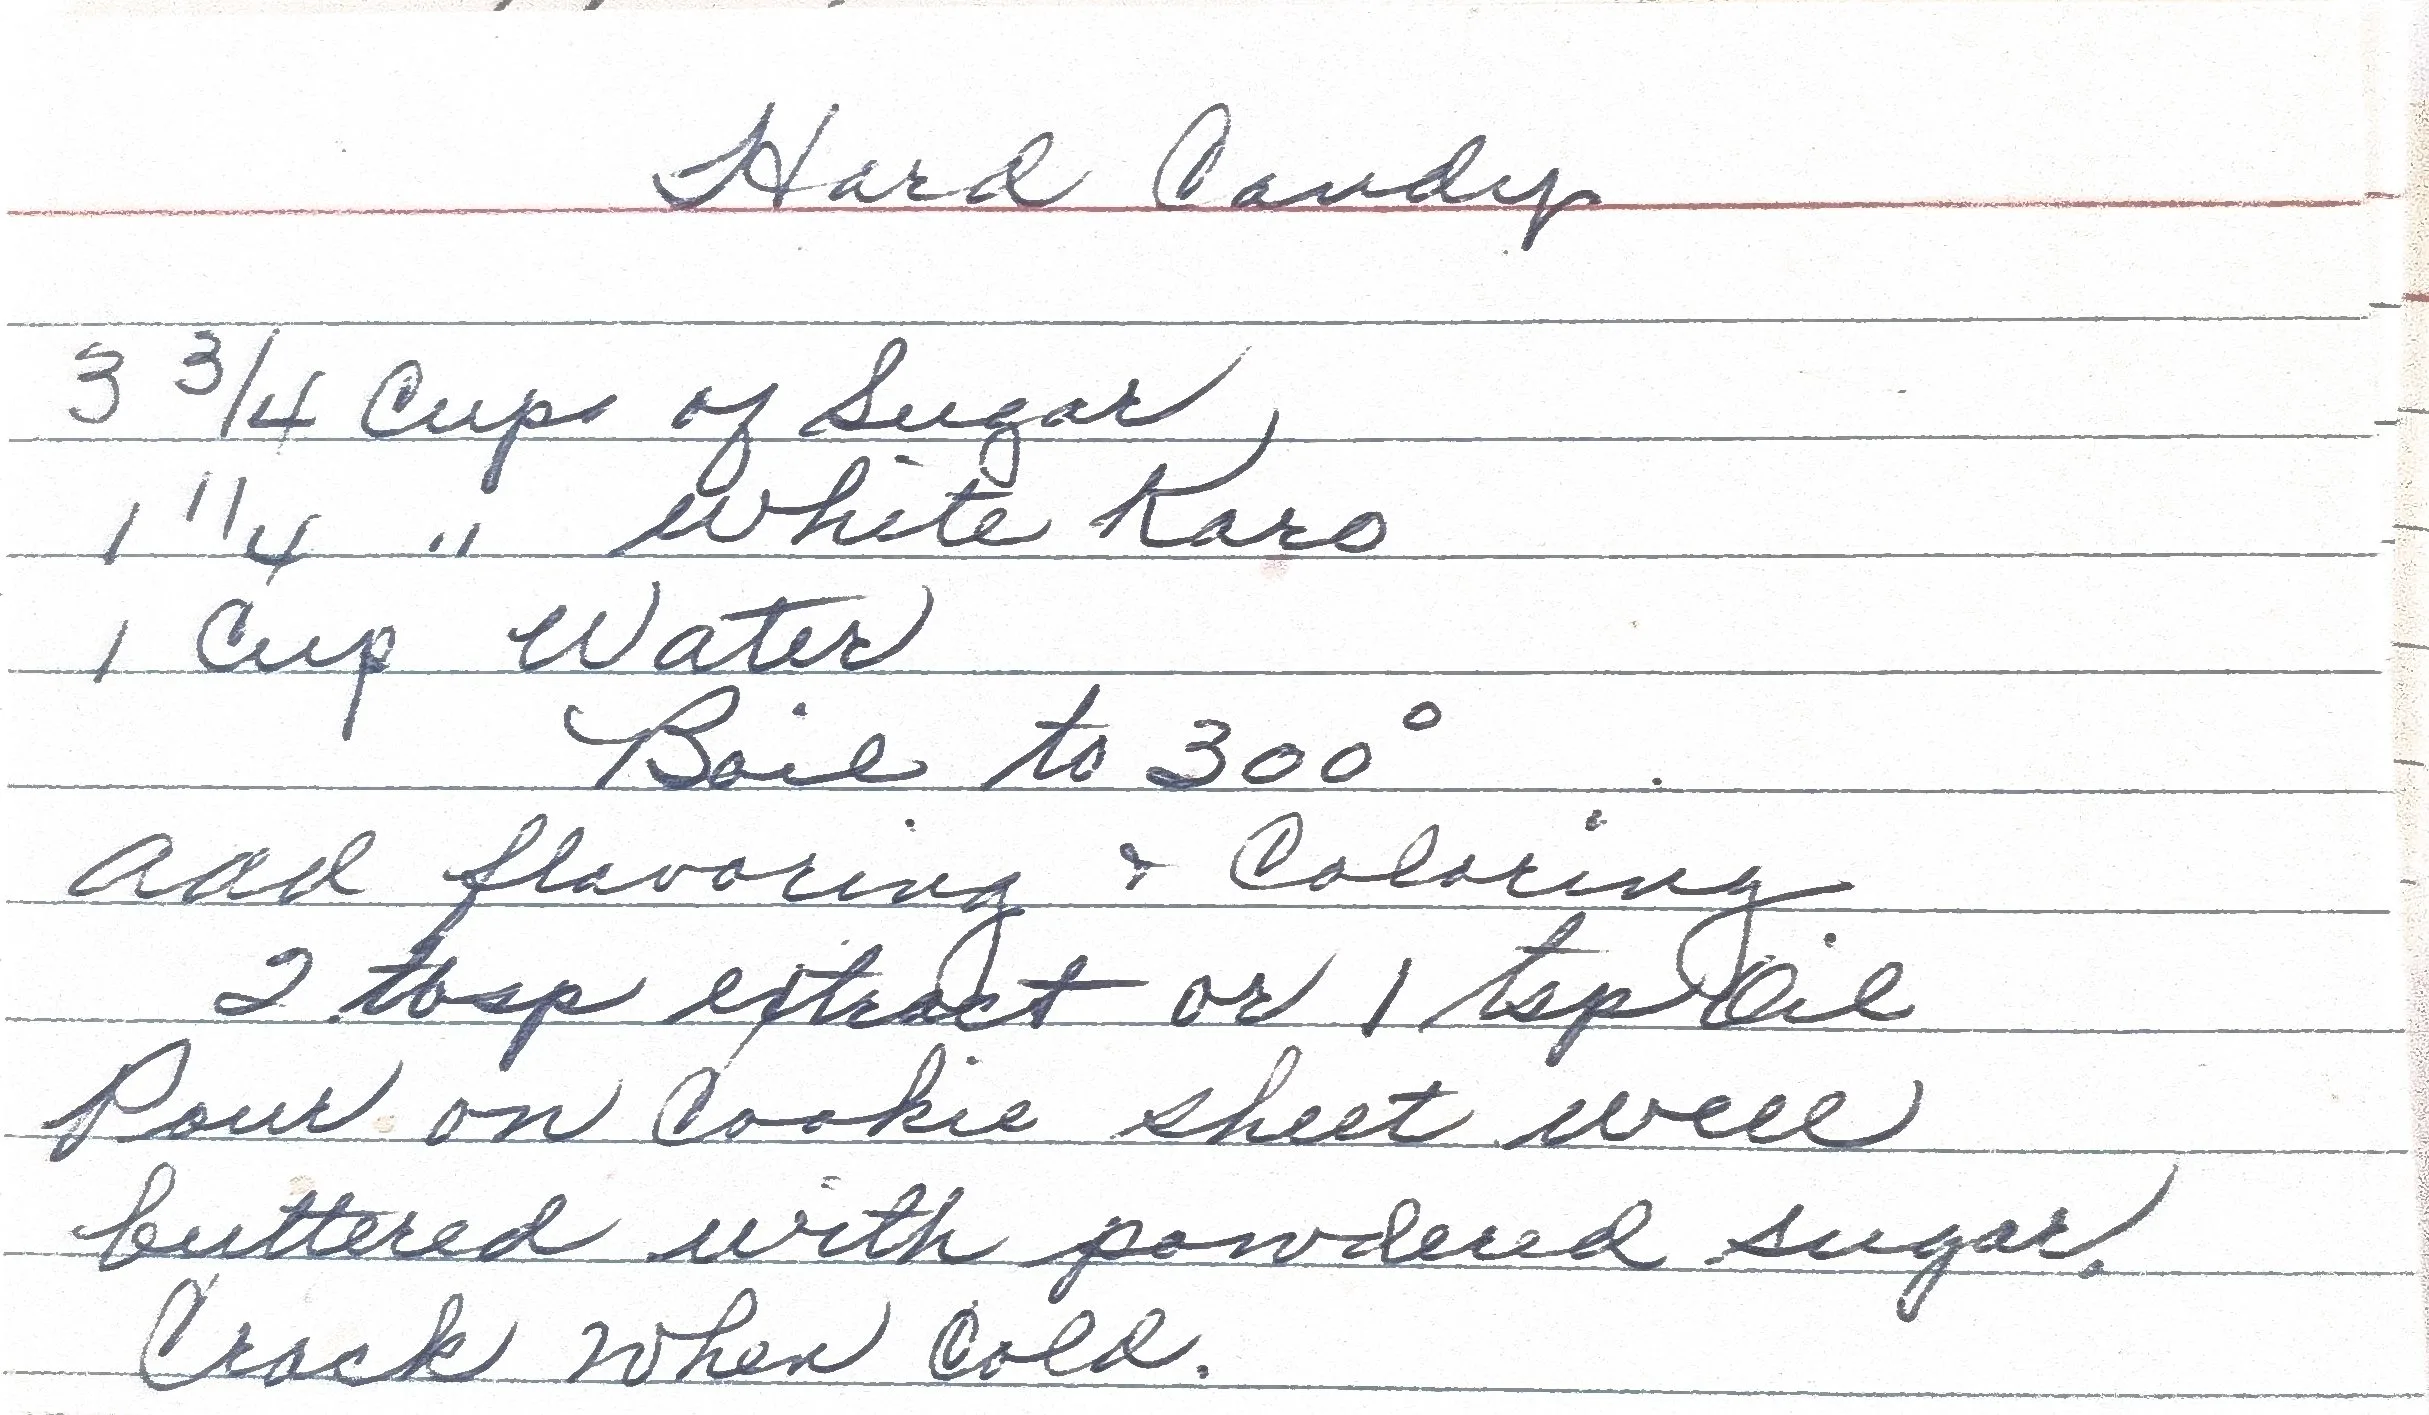 Hard Candy
3 3/4 Cups of Sugar
1 1/4 " White Karo
1 Cup Water
Boil to 300°
add flavoring & Coloring
2 tbsp extract or 1 tsp Oil
Pour on Cookie sheet well
buttered with powdered sugar.
Crack when Cold.